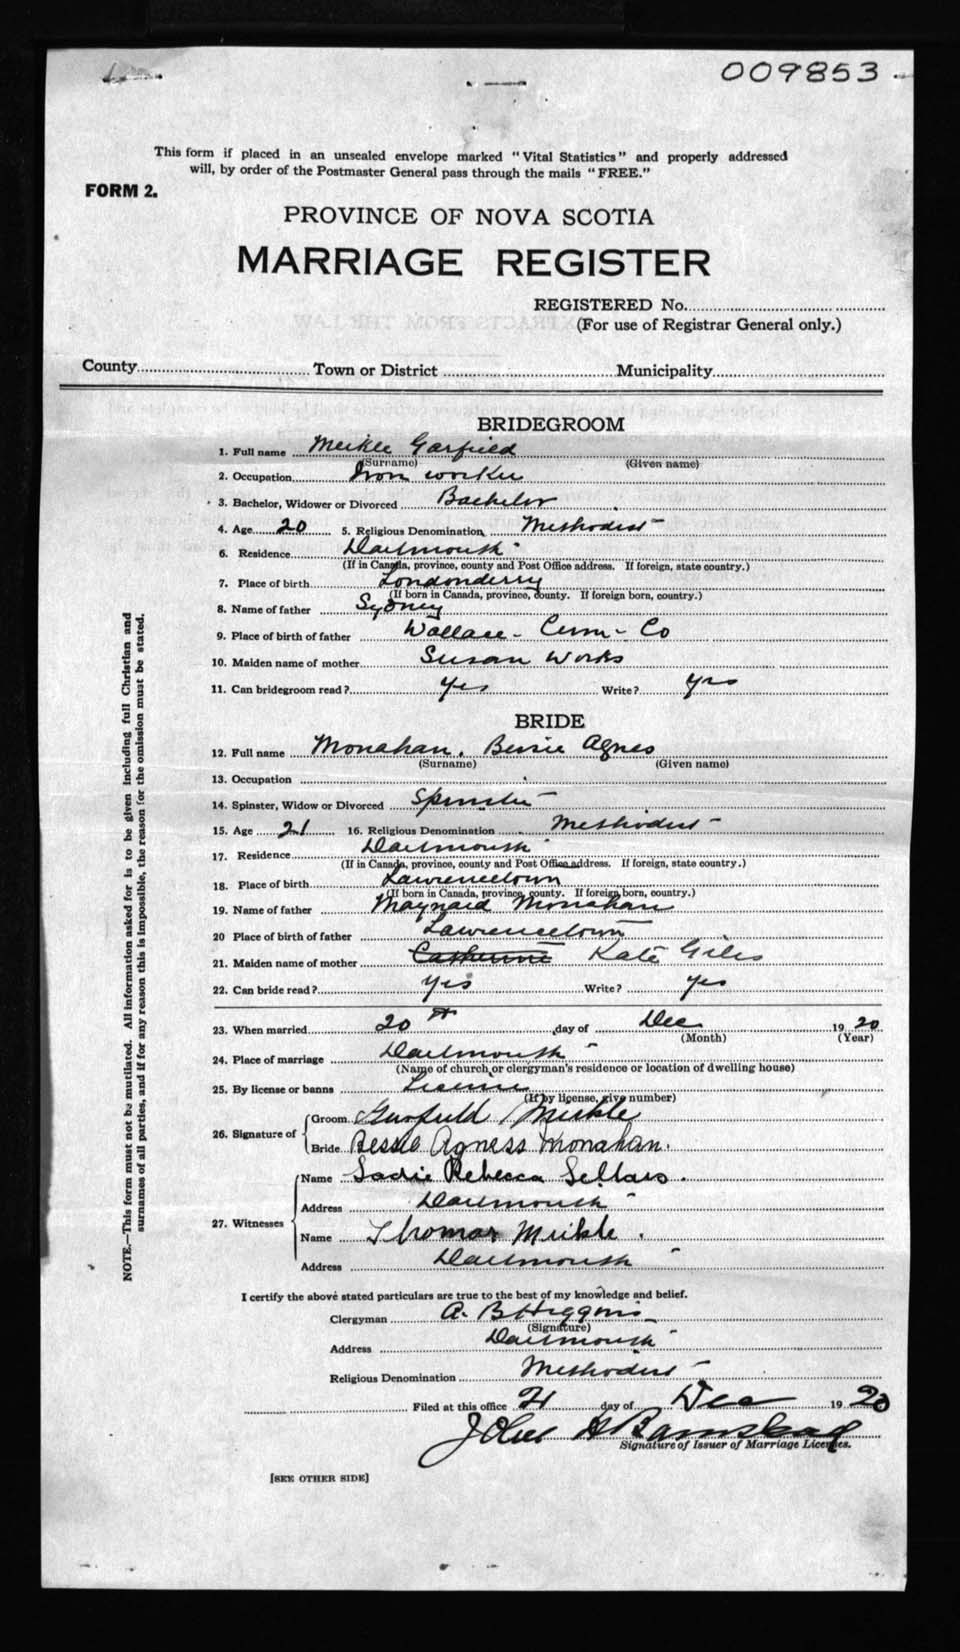 009853
This form if placed in an unsealed envelope marked "Vital Statistics" and properly addressed
will, by order of the Postmaster General pass through the mails "FREE."
FORM 2.
PROVINCE OF NOVA SCOTIA
MARRIAGE REGISTER
REGISTERED No.
(For use of Registrar General only.)
County Town or District Municipality
BRIDEGROOM
1. Full name Meikle Garfield
(Surname) (Given name)
2. Occupation Iron worker
3. Bachelor, Widower or Divorced Bachelor
4. Age 20 5. Religious Denomination Methodist
6. Residence Dartmouth
(If in Canada, province, county and Post Office address. If foreign, state country.)
7. Place of birth Londonderry
(If born in Canada, province, county. If foreign born, country.)
8. Name of father Sydney
9. Place of birth of father Wallace - Cum - Co
10. Maiden name of mother Susan Works
11. Can bridegroom read? Yes Write? Yes
BRIDE
12. Full name Monahan. Bessie Agnes
(Surname) (Given name)
13. Occupation
14. Spinster, Widow or Divorced Spinster
15. Age 21 16. Religious Denomination Methodist
17. Residence Dartmouth
(If in Canada, province, county and Post Office address. If foreign, state country.)
18. Place of birth Lawrencetown
(If born in Canada, province, county. If foreign born, country.)
19. Name of father Maynard Monahan
20 Place of birth of father Lawrencetown
21. Maiden name of mother Catherine Kate Giles
22. Can bride read? Yes Write? Yes
23. When married 20th day of Dec 1920
(Month) (Year)
24. Place of marriage Dartmouth
(Name of church or clergyman's residence or location of dwelling house)
25. By license or banns License
(If by license, give number)
26. Signature of Groom Garfield Meikle
Bride Bessie Agness Monahan.
27. Witnesses Name Sadie Rebecca Sellars.
Address Dartmouth
Name Thomas Meikle.
Address Dartmouth
I certify the above stated particulars are true to the best of my knowledge and belief.
Clergyman A. B Higgins
(Signature)
Address Dartmouth
Religious Denomination Methodist
Filed at this office 21 day of Dec 1920
A
Signature of Issuer of Marriage Licenses.
[SEE OTHER SIDE]
NOTE.—This form must not be mutilated. All information asked for is to be given including full Christian and
surnames of all parties, and if for any reason this is impossible, the reason for the omission must be stated.